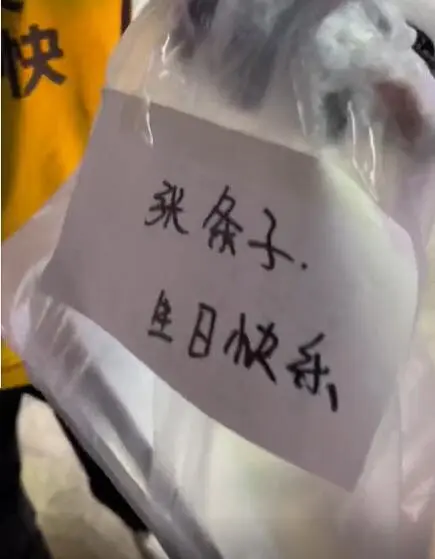 快
张条子.
生日快乐